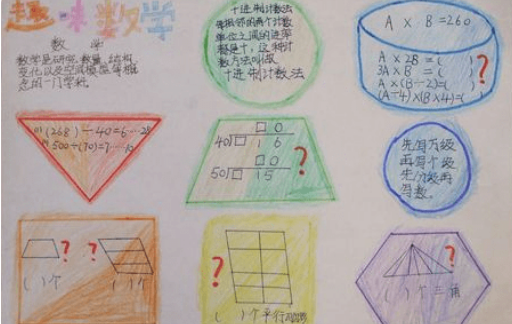 趣味数学
数 学
数学是研究数量、结构、
变化以及空间模型等概
念的一门学科
十进制计数法
每相邻的两个计数
单位之间的进率
都是十,这种计
数方法叫做
十进制计数法
A × B = 260
A × 2B = ( )
3A × B = ( )
A × (B÷2) = ( )
(A÷4)×(B×4)=( )
?
(268)÷40=6…28
500÷(70)=7…10
□ 0
40 □ 1 6
□ 0
50 □ 1 5
?
先写万级
再写个级
再
写数。
? ?
( )个
( )个
?
( )个平行四边形
?
( )个三角